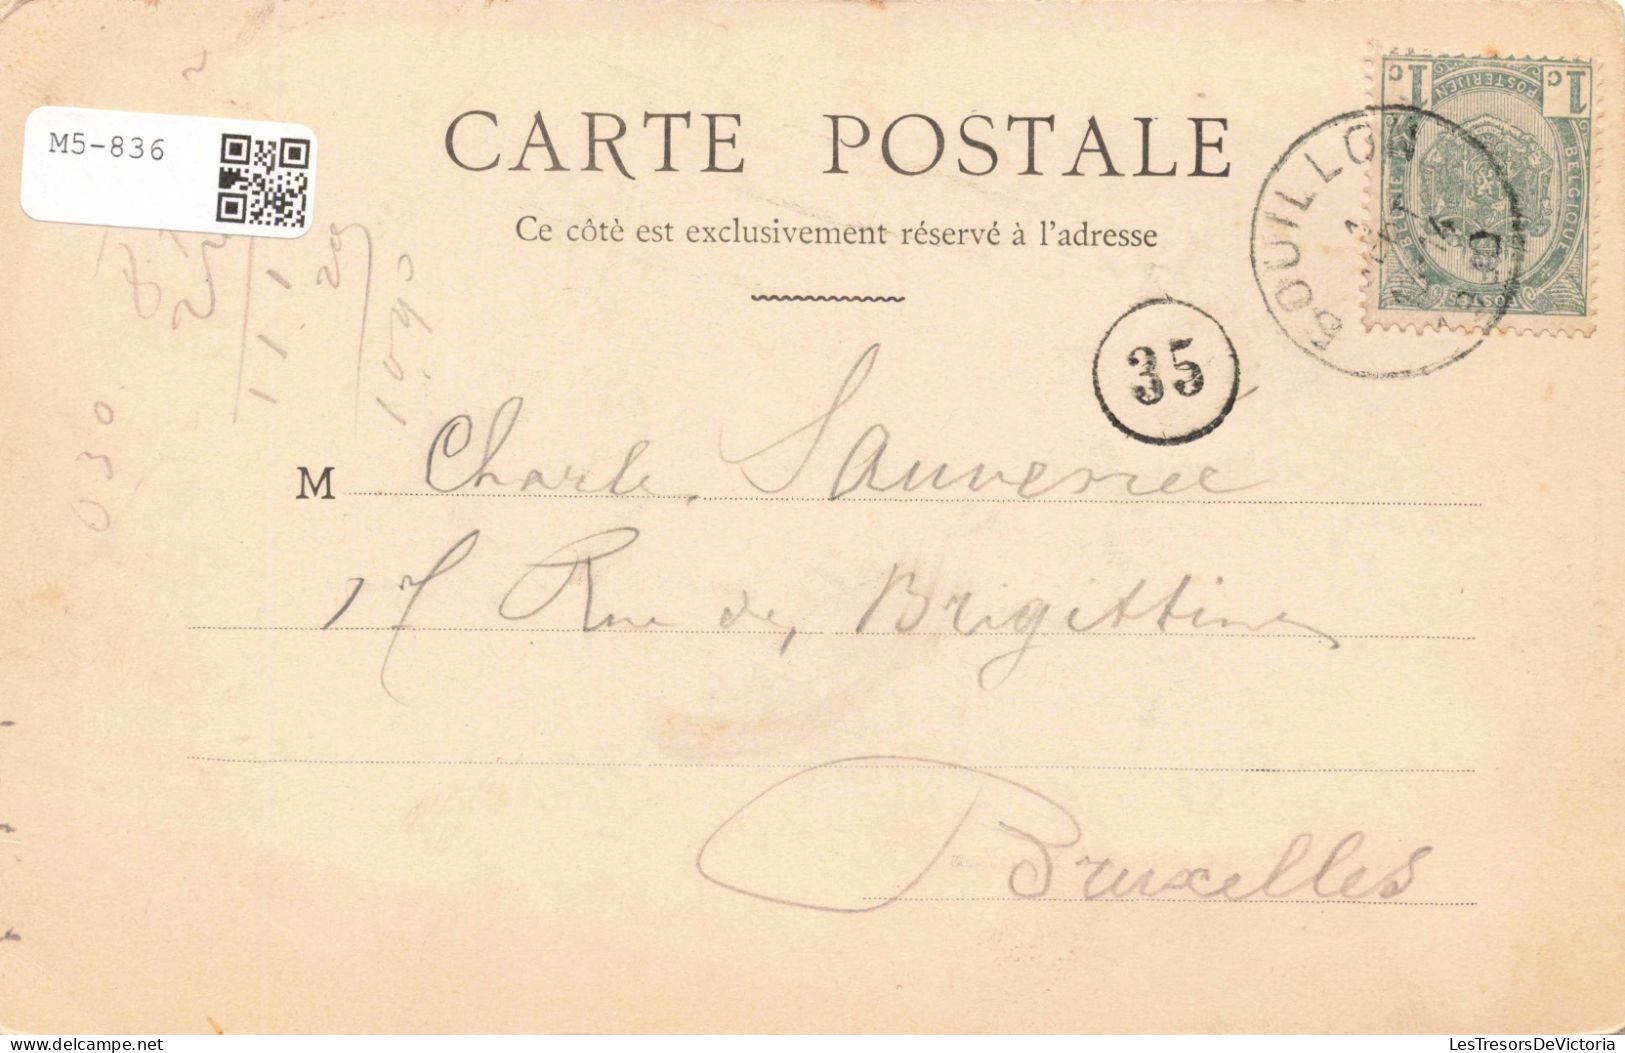 M5-836
CARTE POSTALE
Ce côtè est exclusivement réservé à l'adresse
1c 1c
POSTERIJEN
BELGIQUE
POSTES
BELGIE
BOUILLON
35
M Charles Sauveniee
17 Rue des Brigittines
Bruxelles
1 1 1
29
1090
030
LesTresorsDeVictoria
LesTresorsDeVictoria